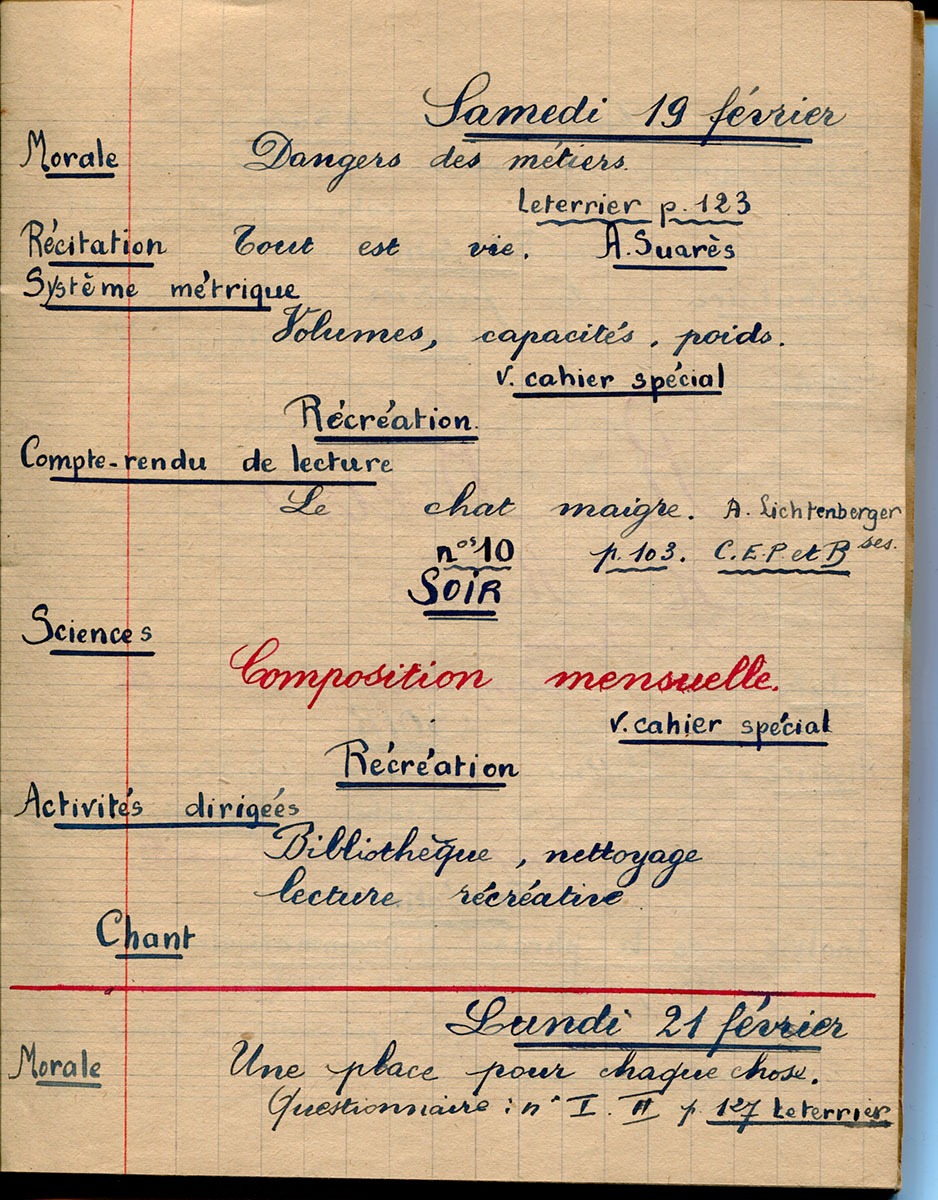 Samedi 19 février
Morale Dangers des métiers.
Leterrier p. 123
Récitation Tout est vie. A. Suarès
Système métrique
Volumes, capacités, poids.
v. cahier spécial
Récréation.
Compte-rendu de lecture
Le chat maigre. A. Lichtenberger
nos 10 p. 103. C.E.P. et Bses.
SOIR
Sciences
Composition mensuelle.
v. cahier spécial
Récréation
Activités dirigées
Bibliothèque, nettoyage
lecture récréative
Chant
Lundi 21 février
Morale Une place pour chaque chose.
Questionnaire : n° I. II p. 127 Leterrier